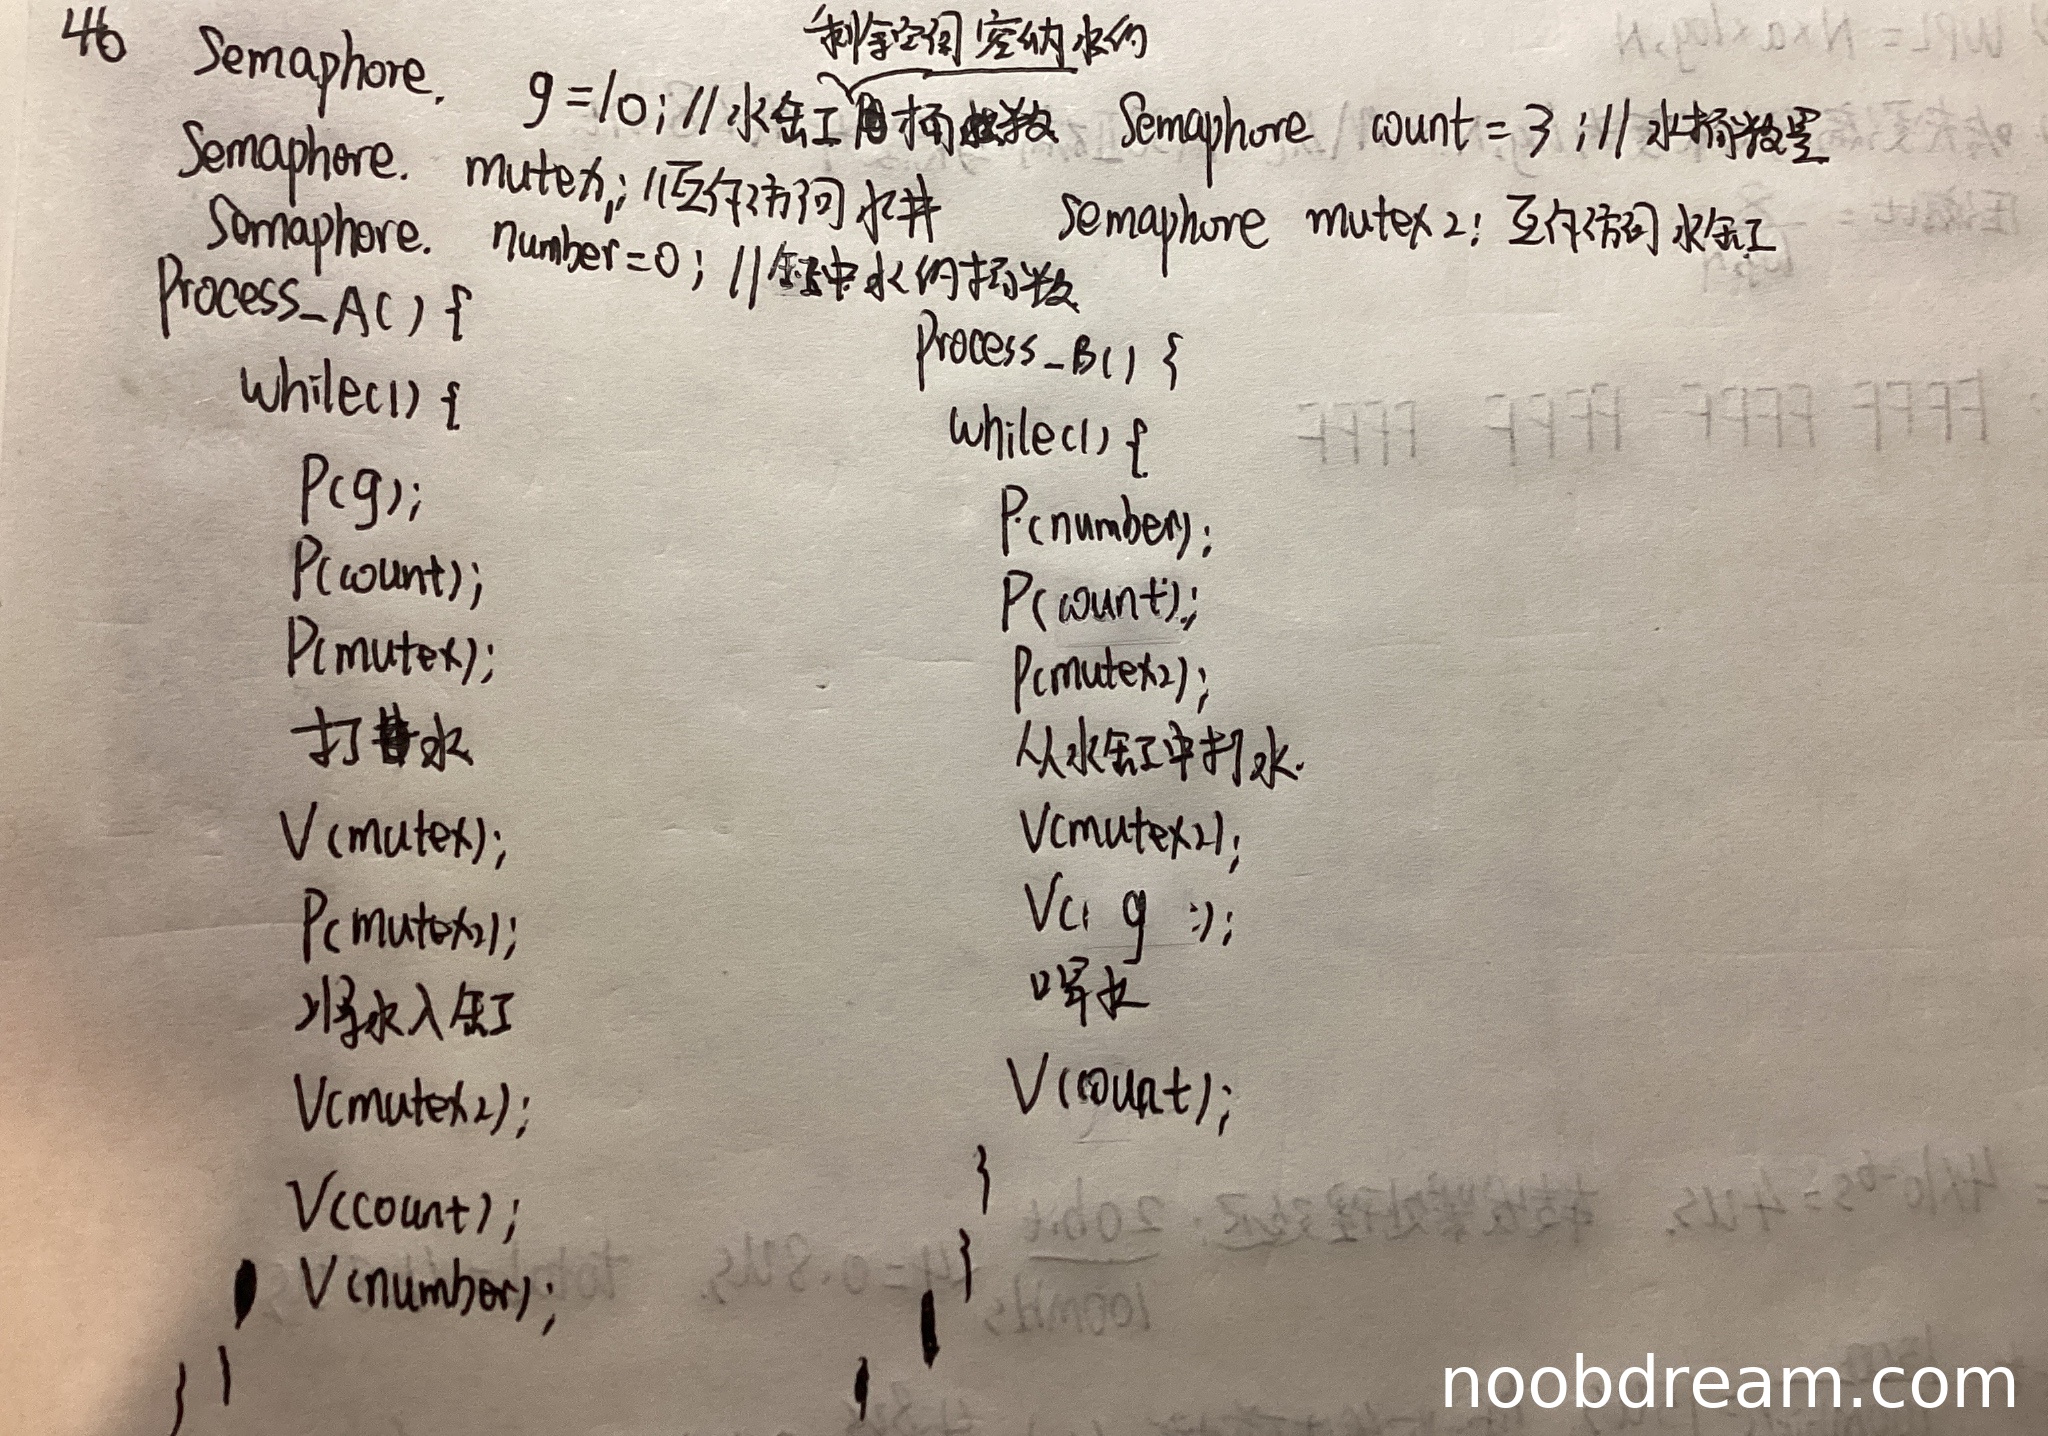 46
剩余空间容纳水的
Semaphore. g=10; //水缸桶数 Semaphore count=3; //水桶数量
Semaphore. mutex1; //互斥访问水井 Semaphore mutex2; 互斥访问水缸
Semaphore. number=0; //缸中水的桶数
Process_A() {
while(1) {
P(g);
P(count);
P(mutex);
打水
V(mutex);
P(mutex2);
将水入缸
V(mutex2);
V(count);
V(number);
} }
Process_B() {
while(1) {
P(number);
P(count);
P(mutex2);
从水缸中打水.
V(mutex2);
V( g );
喝水
V(count);
}
}
noobdream.com